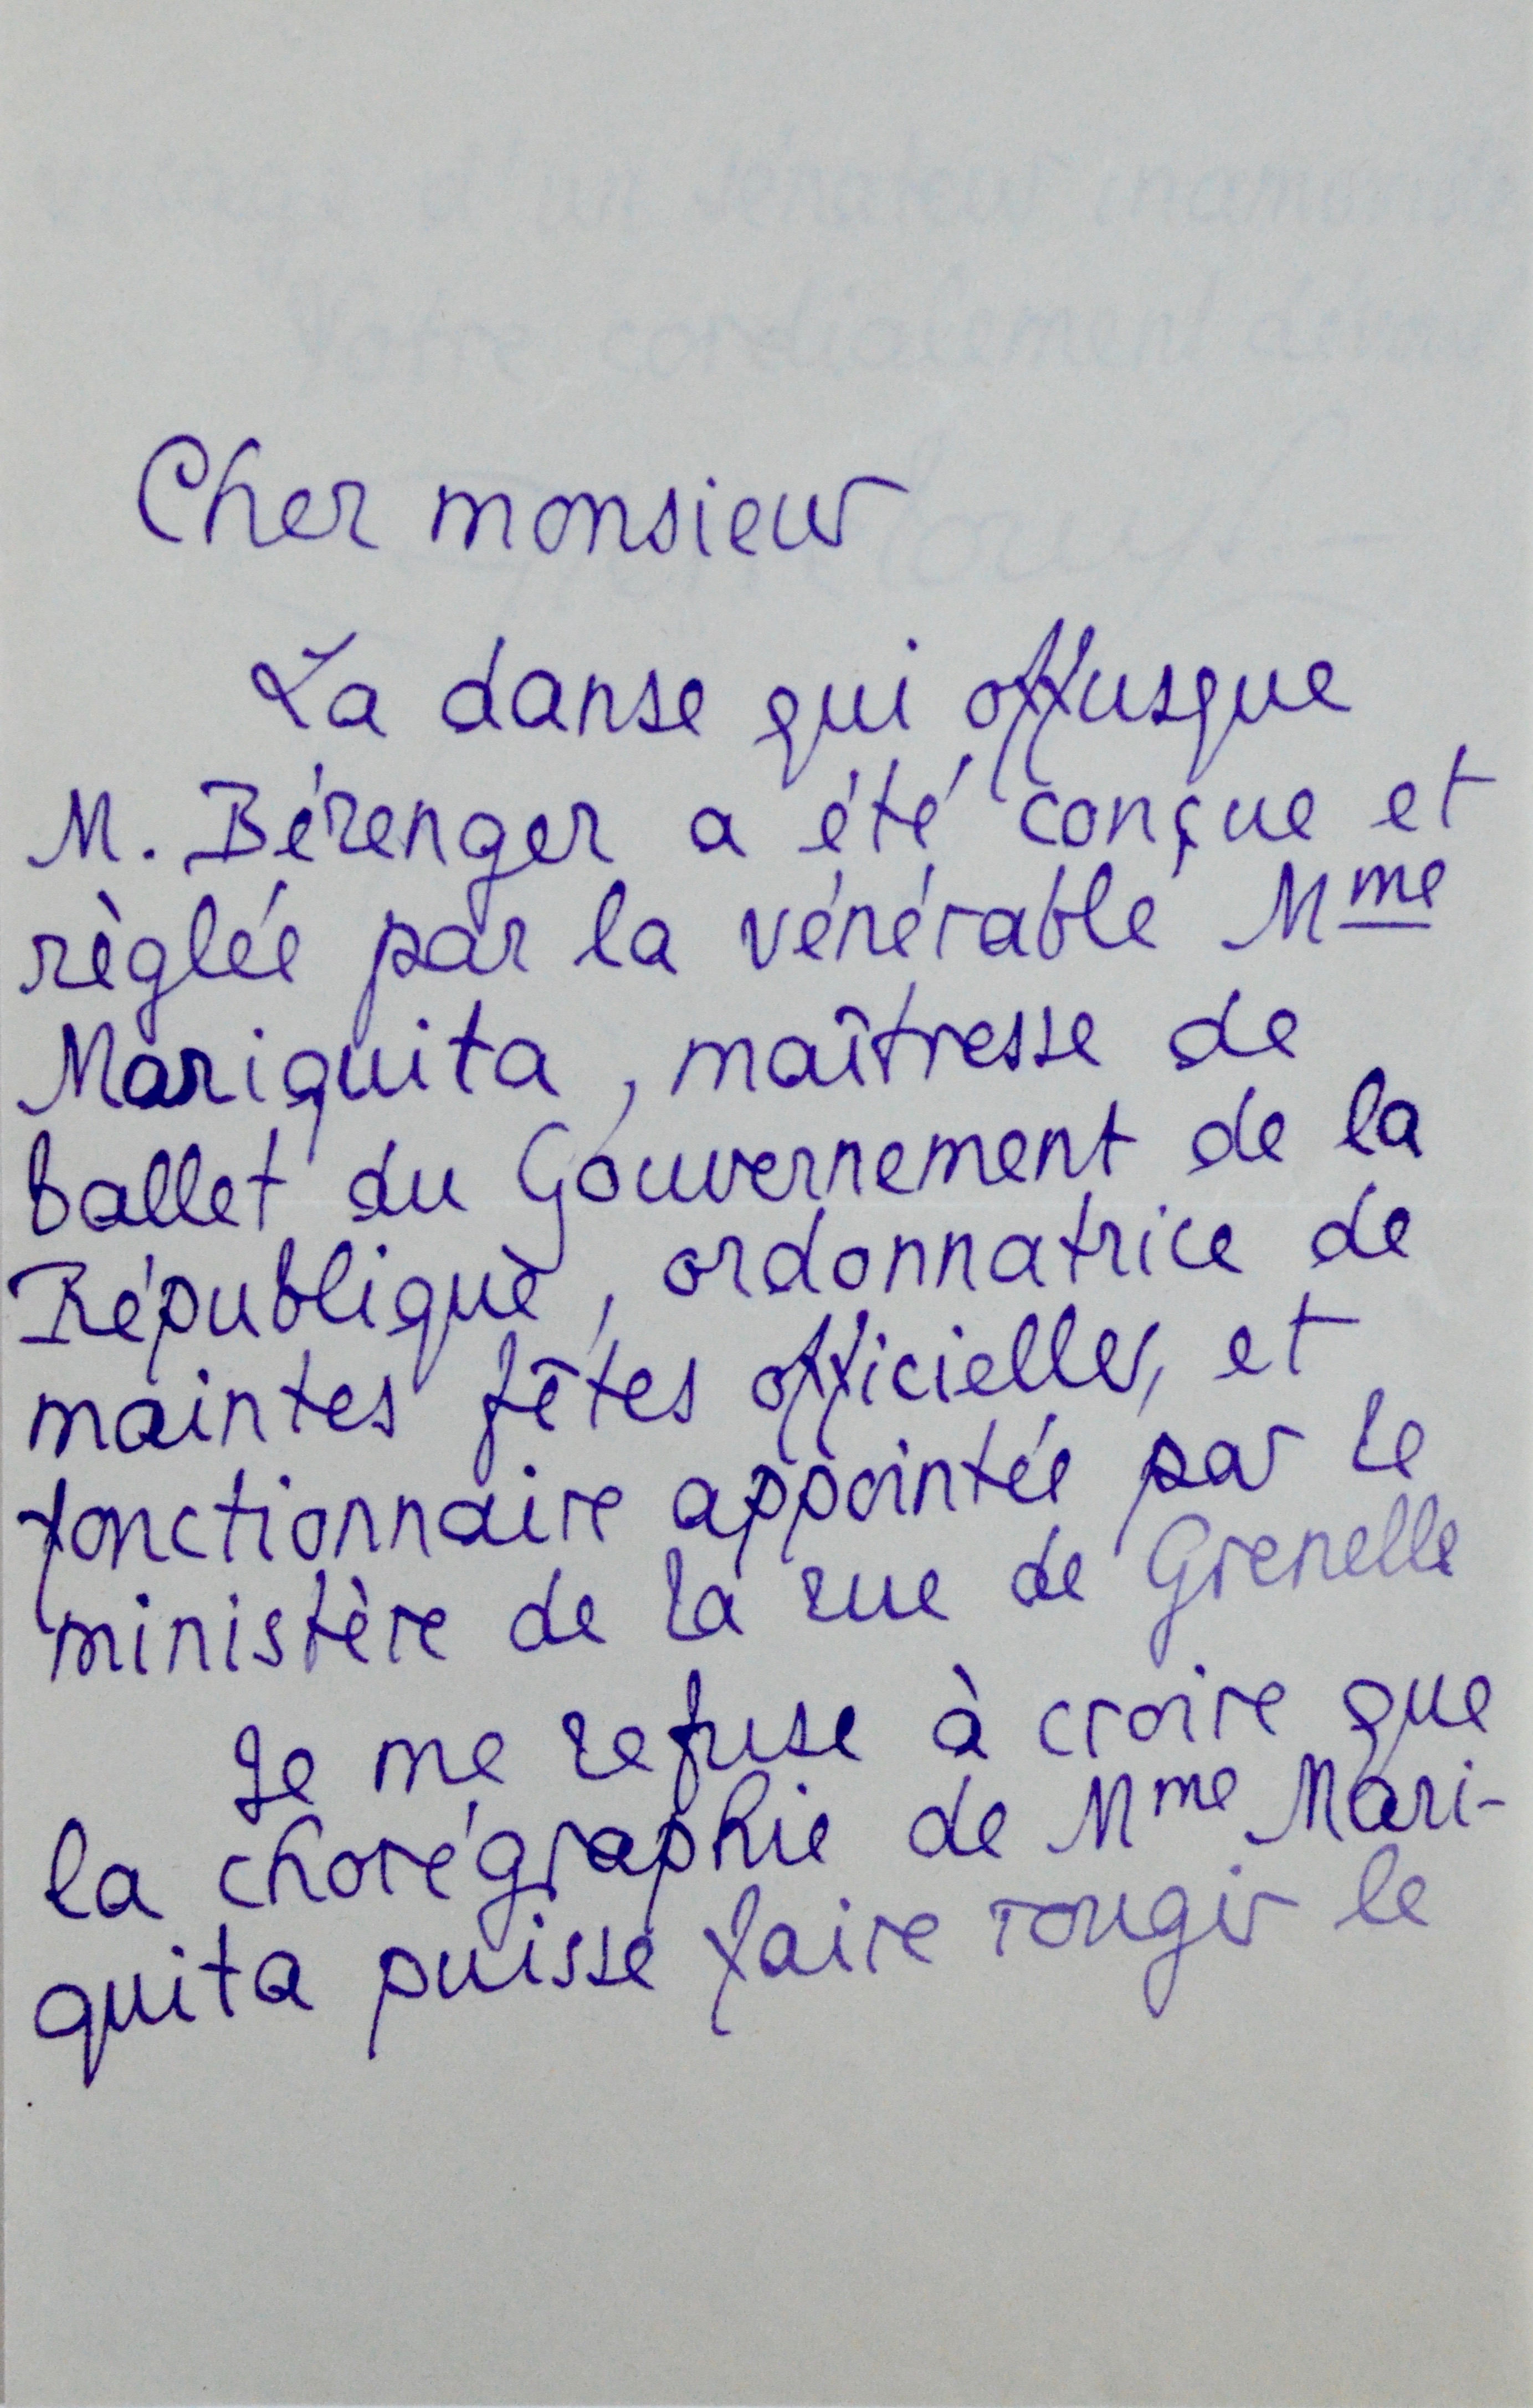 Cher monsieur
La danse qui offusque
M. Bérenger a été conçue et
règlée par la vénérable Mme
Mariquita, maîtresse de
ballet du Gouvernement de la
République, ordonnatrice de
maintes fêtes officielles, et
fonctionnaire appointée par le
ministère de la rue de Grenelle
Je me refuse à croire que
la chorégraphie de Mme Mari-
quita puisse faire rougir le